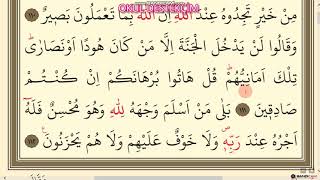 OKUL DESTEK.COM
مِنْ خَيْرٍ تَجِدُوهُ عِنْدَ اللّٰهِ اِنَّ اللّٰهَ بِمَا تَعْمَلُونَ بَصِيرٌ ﴿١١٠﴾
وَقَالُوا لَنْ يَدْخُلَ الْجَنَّةَ اِلَّا مَنْ كَانَ هُودًا اَوْ نَصَارٰى
تِلْكَ اَمَانِيُّهُمْ قُلْ هَاتُوا بُرْهَانَكُمْ اِنْ كُنْتُمْ
صَادِقِينَ ﴿١١١﴾ بَلٰى مَنْ اَسْلَمَ وَجْهَهُ لِلّٰهِ وَهُوَ مُحْسِنٌ فَلَهُٓ
اَجْرُهُ عِنْدَ رَبِّهِ وَلَا خَوْفٌ عَلَيْهِمْ وَلَا هُمْ يَحْزَنُونَ ﴿١١٢﴾